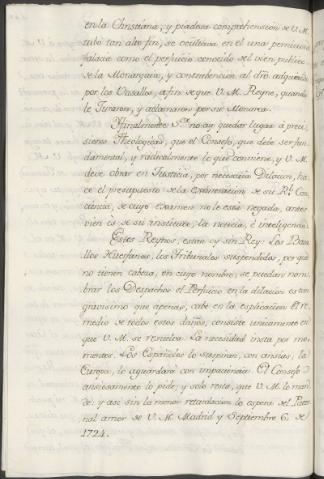 en la Christiana, y piadosa comprehension de V. M.
tubo tan alto fin, se occultava en el una perniciosa
falacia como el perjuicio conocido del vien publico
de la Monarquia, y contravencion al dro. adquirido
por los Vasallos, a fin de que V. M. Reyne, quando
le Juraron, y aclamaron por su Monarca.
Y finalmente Sr. no ay quedar lugar á preci-
siones Theologicas, que el Consejo, que debe ser fun-
damental, y radicalmente lo que conviene, y V. M.
deve obrar en Justicia, por necesaria Ilacion, ha-
ce el presupuesto de la exoneracion de su Rl. Con-
ciencia, de cuyo examen no le está negada, antes
vien és de su instituto, la noticia, é inteligencia.
Estos Reynos, estan oy sin Rey: Los Vasa-
llos Huerfanos, los Tribunales suspendidos, por que
no tienen cabeza, en cuyo nombre, se puedan nom-
brar los Despachos el Perjuicio en la dilacion es tan
gravisimo que apenas, cabe en la explicacion El re-
medio de todos estos daños, consiste unicamente en
que V. M. se resuelva. La necesidad insta por mo-
mentos. Los Españoles lo suspiran, con ansias, la
Europa, lo aguarda con impaciencia. El Consejo
ansiosamente lo pide, y solo resta, que V. M. lo man-
de: y asi sin la menor retardacion lo espera del Pater-
nal amor de V. M. Madrid y Septiembre 6. de
1724.